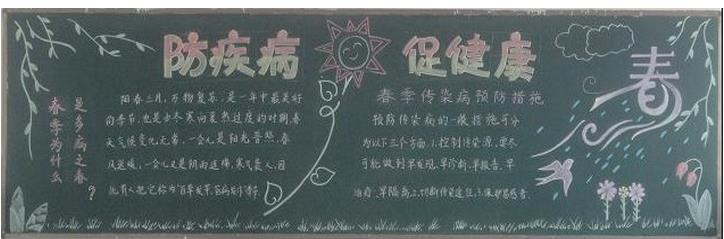 防疾病 促健康
春季为什么
是多病之春?
阳春三月,万物复苏,是一年中最美好
的季节,也是由冬寒向夏热过度的时期,春
天气候变化无常,一会儿是阳光普照,春
风送暖,一会儿又是阴雨连绵,寒气袭人,因
此有人把它称为
春季传染病预防措施
预防传染病的一般措施可分
为以下三个方面.1.控制传染源,要尽
可能做到早发现,早诊断,早报告,早
治疗,早隔离.2.切断传染途径.3.保护易感者.
春